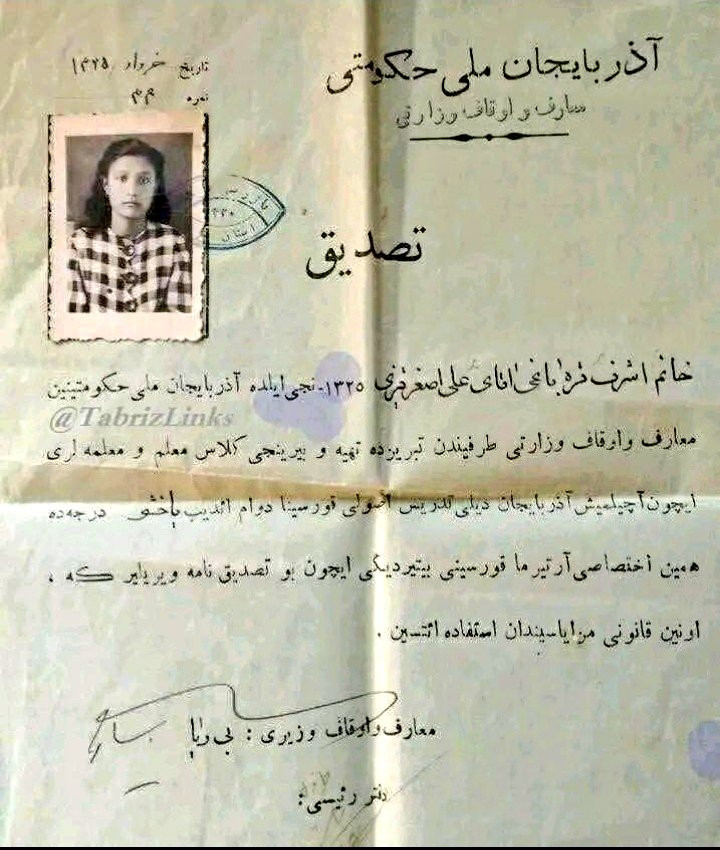 آذربایجان ملی حکومتی
معارف و اوقاف وزارتی
تاریخ خرداد ۱۳۲۵
نمره ۳۳
تصدیق
خانم اشرف قره باغی آقای علی اصغر قیزی ۱۳۲۵-نجی ایلده آذربایجان ملی حکومتینین
@TabrizLinks
معارف و اوقاف وزارتی طرفیندن تبریزده تهیه و بیرینجی کلاس معلم و معلمه لری
ایچون آچیلمیش آذربایجان دیلی تدریس اصولی قورسینا دوام ائدیب یاخشی درجه ده
همین اختصاصی آرتیرما قورسینی بیتیردیگی ایچون بو تصدیق نامه ویریلیر که ،
اونین قانونی مزایاسیندان استفاده ائتسین .
معارف و اوقاف وزیری : بی ریا
دفتر رئیسی :